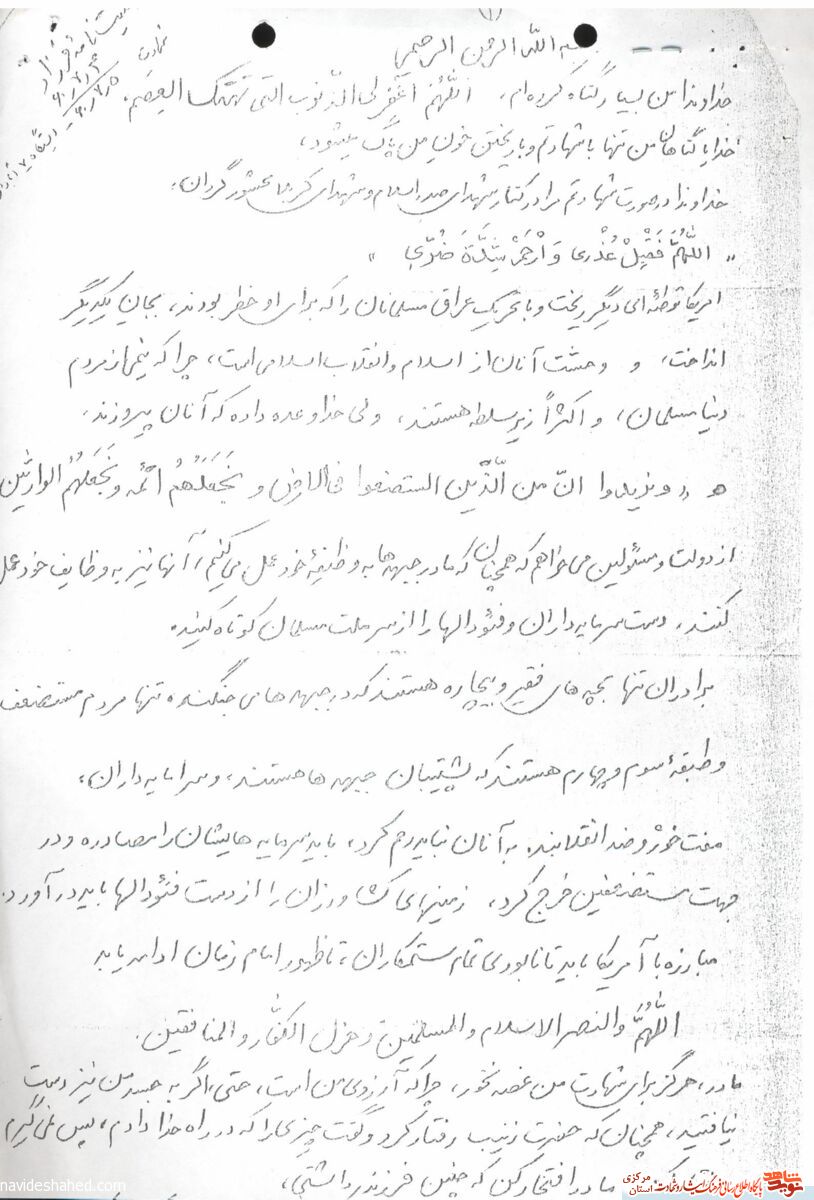 (۱
بسم الله الرحمن الرحیم
خداوندا من بسیار گناه کرده‌ام، اللّهُمَّ اغْفِر لِی الذّنوبَ الّتی تَهْتِکُ العِصَم.
خدایا گناهان من تنها با شهادتم و با ریختن خون من پاک میشود،
خداوندا در صورت شهادتم مرا در کنار شهدای صدر اسلام و شهدای کربلا محشور گردان.
« اللّهُمَّ فَقْبِلْ عُذْری وَ ارْحَمْ شِدَّةَ ضُرّی »
امریکا توطئه‌ای دیگر ریخت و با تحریک عراق مسلمانان را که برای او خطر بودند، بجان یکدیگر
انداخت، و وحشت آنان از اسلام و انقلاب اسلامی است، چرا که نیمی از مردم
دنیا مسلمان، و اکثراً زیر سلطه هستند، ولی خدا وعده داده که آنان پیروزند.
و « و نرید ان من الّذین استضعفوا فی الارض و نجعلهُم ائمه و نجعلهُم الوارثین
از دولت و مسئولین می‌خواهم که همچنان که ما در جبهه‌ها به وظیفهٔ خود عمل می‌کنیم، آنها نیز به وظایف خود عمل
کنند، دست سرمایه‌داران و فئودالها را از سر ملت مسلمان کوتاه کنید.
برادران تنها بچه‌های فقیر و بیچاره هستند که در جبهه‌ها می‌جنگند و تنها مردم مستضعف
و طبقهٔ سوم و چهارم هستند که پشتیبان جبهه‌ها هستند، و سرمایه‌داران،
مفت‌خور و ضد انقلابند. به آنان نباید رحم کرد، باید سرمایه‌هایشان را مصادره و در
جهت مستضعفین خرج کرد، زمینهای کشاورزان را از دست فئودالها باید در آورد.
مبارزه با آمریکا باید تا نابودی تمام ستمکاران، تا ظهور امام زمان ادامه یابد
اللّهُمَّ والنصر الاسلام و المسلمین و خزل الکفّار و المنافقین.
مادر، هرگز برای شهادت من غصه نخور، چرا که آرزوی من است، حتی اگر به جسد من نیز دست
نیافتید، همچنان که حضرت زینب رفتار کرد و گفت چیزی را که در راه خدا دادم، پس نمی‌گیرم
مادر افتخار کن که چنین فرزندی داشتی،
navideshahed.com
نوید شاهد
پایگاه اطلاع رسانی فرهنگ ایثار و شهادت
استان مرکزی